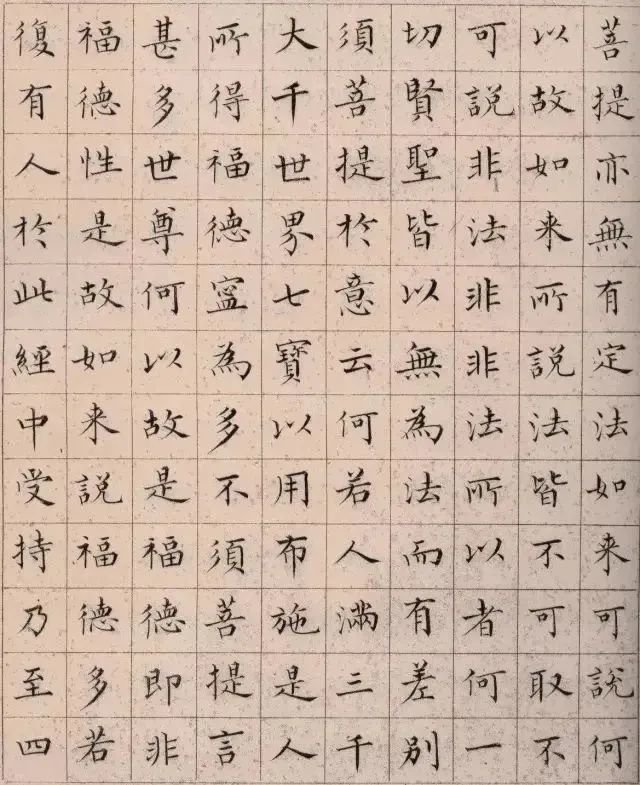 菩提亦無有定法如来可説何
以故如来所説法皆不可取不
可説非法非非法所以者何一
切賢聖皆以無為法而有差别
須菩提於意云何若人滿三千
大千世界七寶以用布施是人
所得福德寍為多不須菩提言
甚多世尊何以故是福德即非
福德性是故如来説福德多若
復有人於此經中受持乃至四